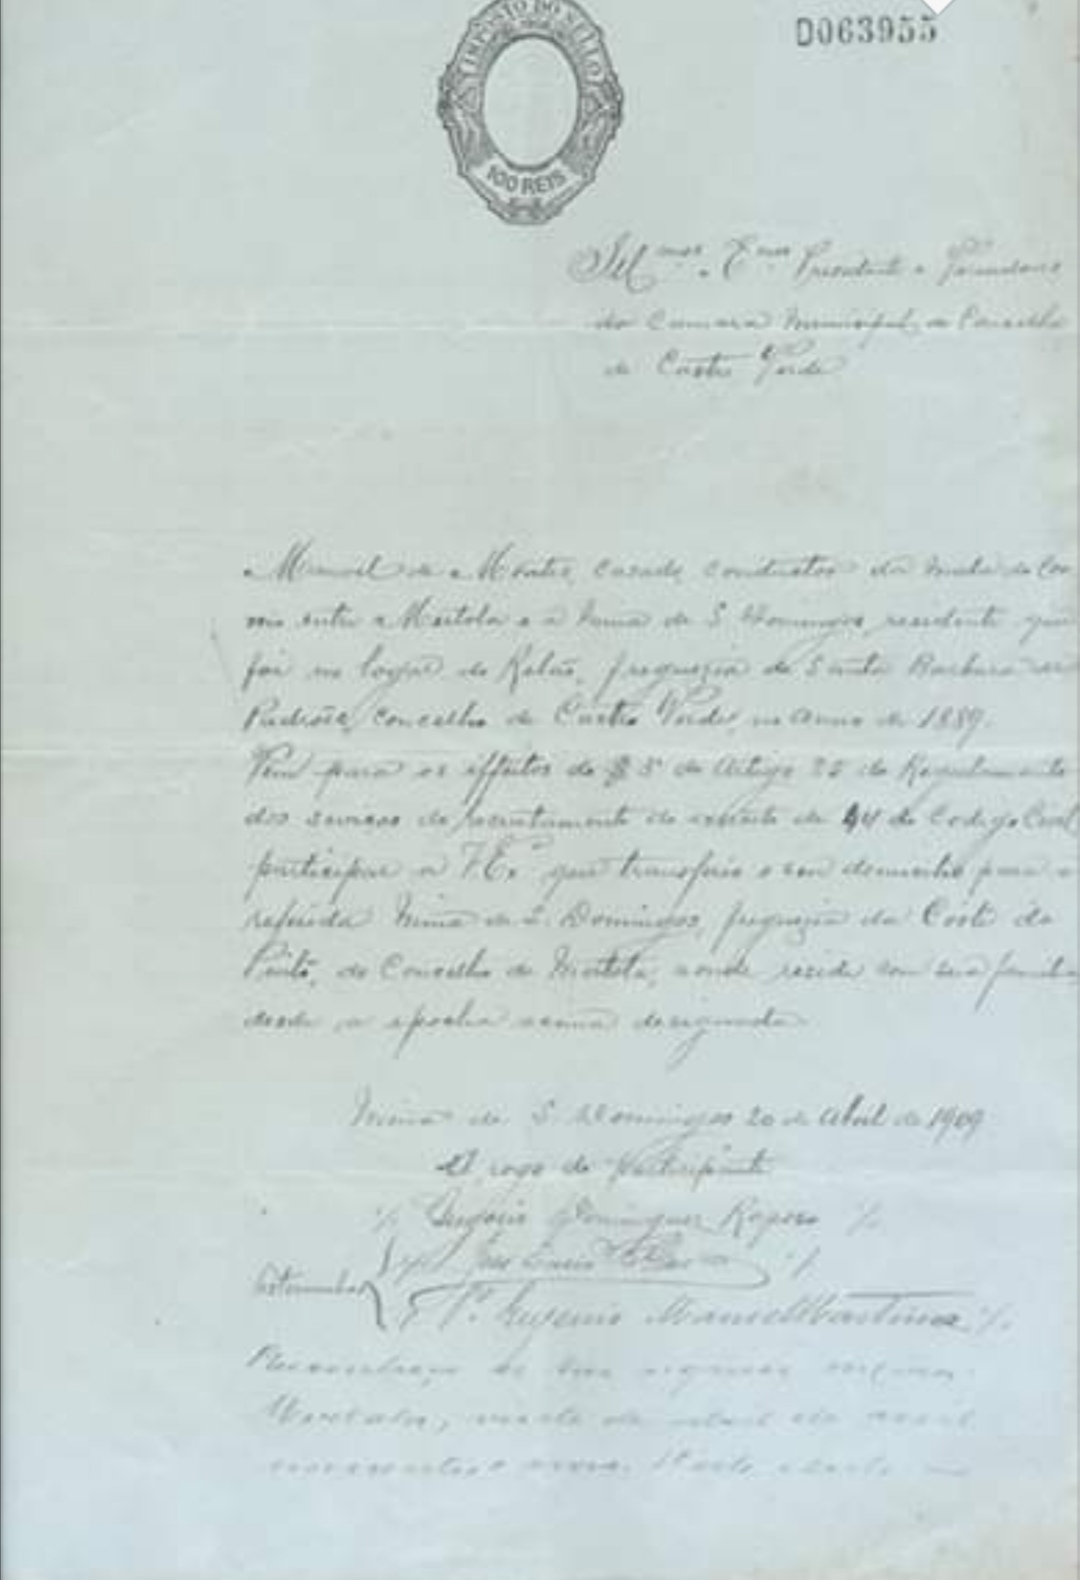 IMPOSTO DO SELLO
100 REIS
D063955
Ill.mos e Ex.mos Presidente e Vereadores
da Camara Municipal do Concelho
de Castro Verde
Manoel de Montes, casado, conductor da mala do Cor
reio entre Mertola e a Mina de S. Domingos, residente que
foi no logar de, freguezia de Santa Barbara de
Padrões, concelho de Castro Verde, no anno de 1889.
Vem para os effeitos do § 5º do Artigo 22 do Regulamento
dos serviços do recrutamento do exercito de 44 do Codigo Civil
participar a V. Exª que transferio o seu domicilio para a
referida Mina de S. Domingos, freguezia da Corte do
Pinto, do Concelho de Mertola, aonde reside com sua familia
desde a epocha acima designada.
Mina de S. Domingos 20 de Abril de 1909
A rogo do Participante
Gregorio Domingues Raposo
Testemunhas José
Pe. Eugenio Manoel Martins
Reconheço as tres signaes
Mertola, vinte de abril de mil
novecentos e nove.